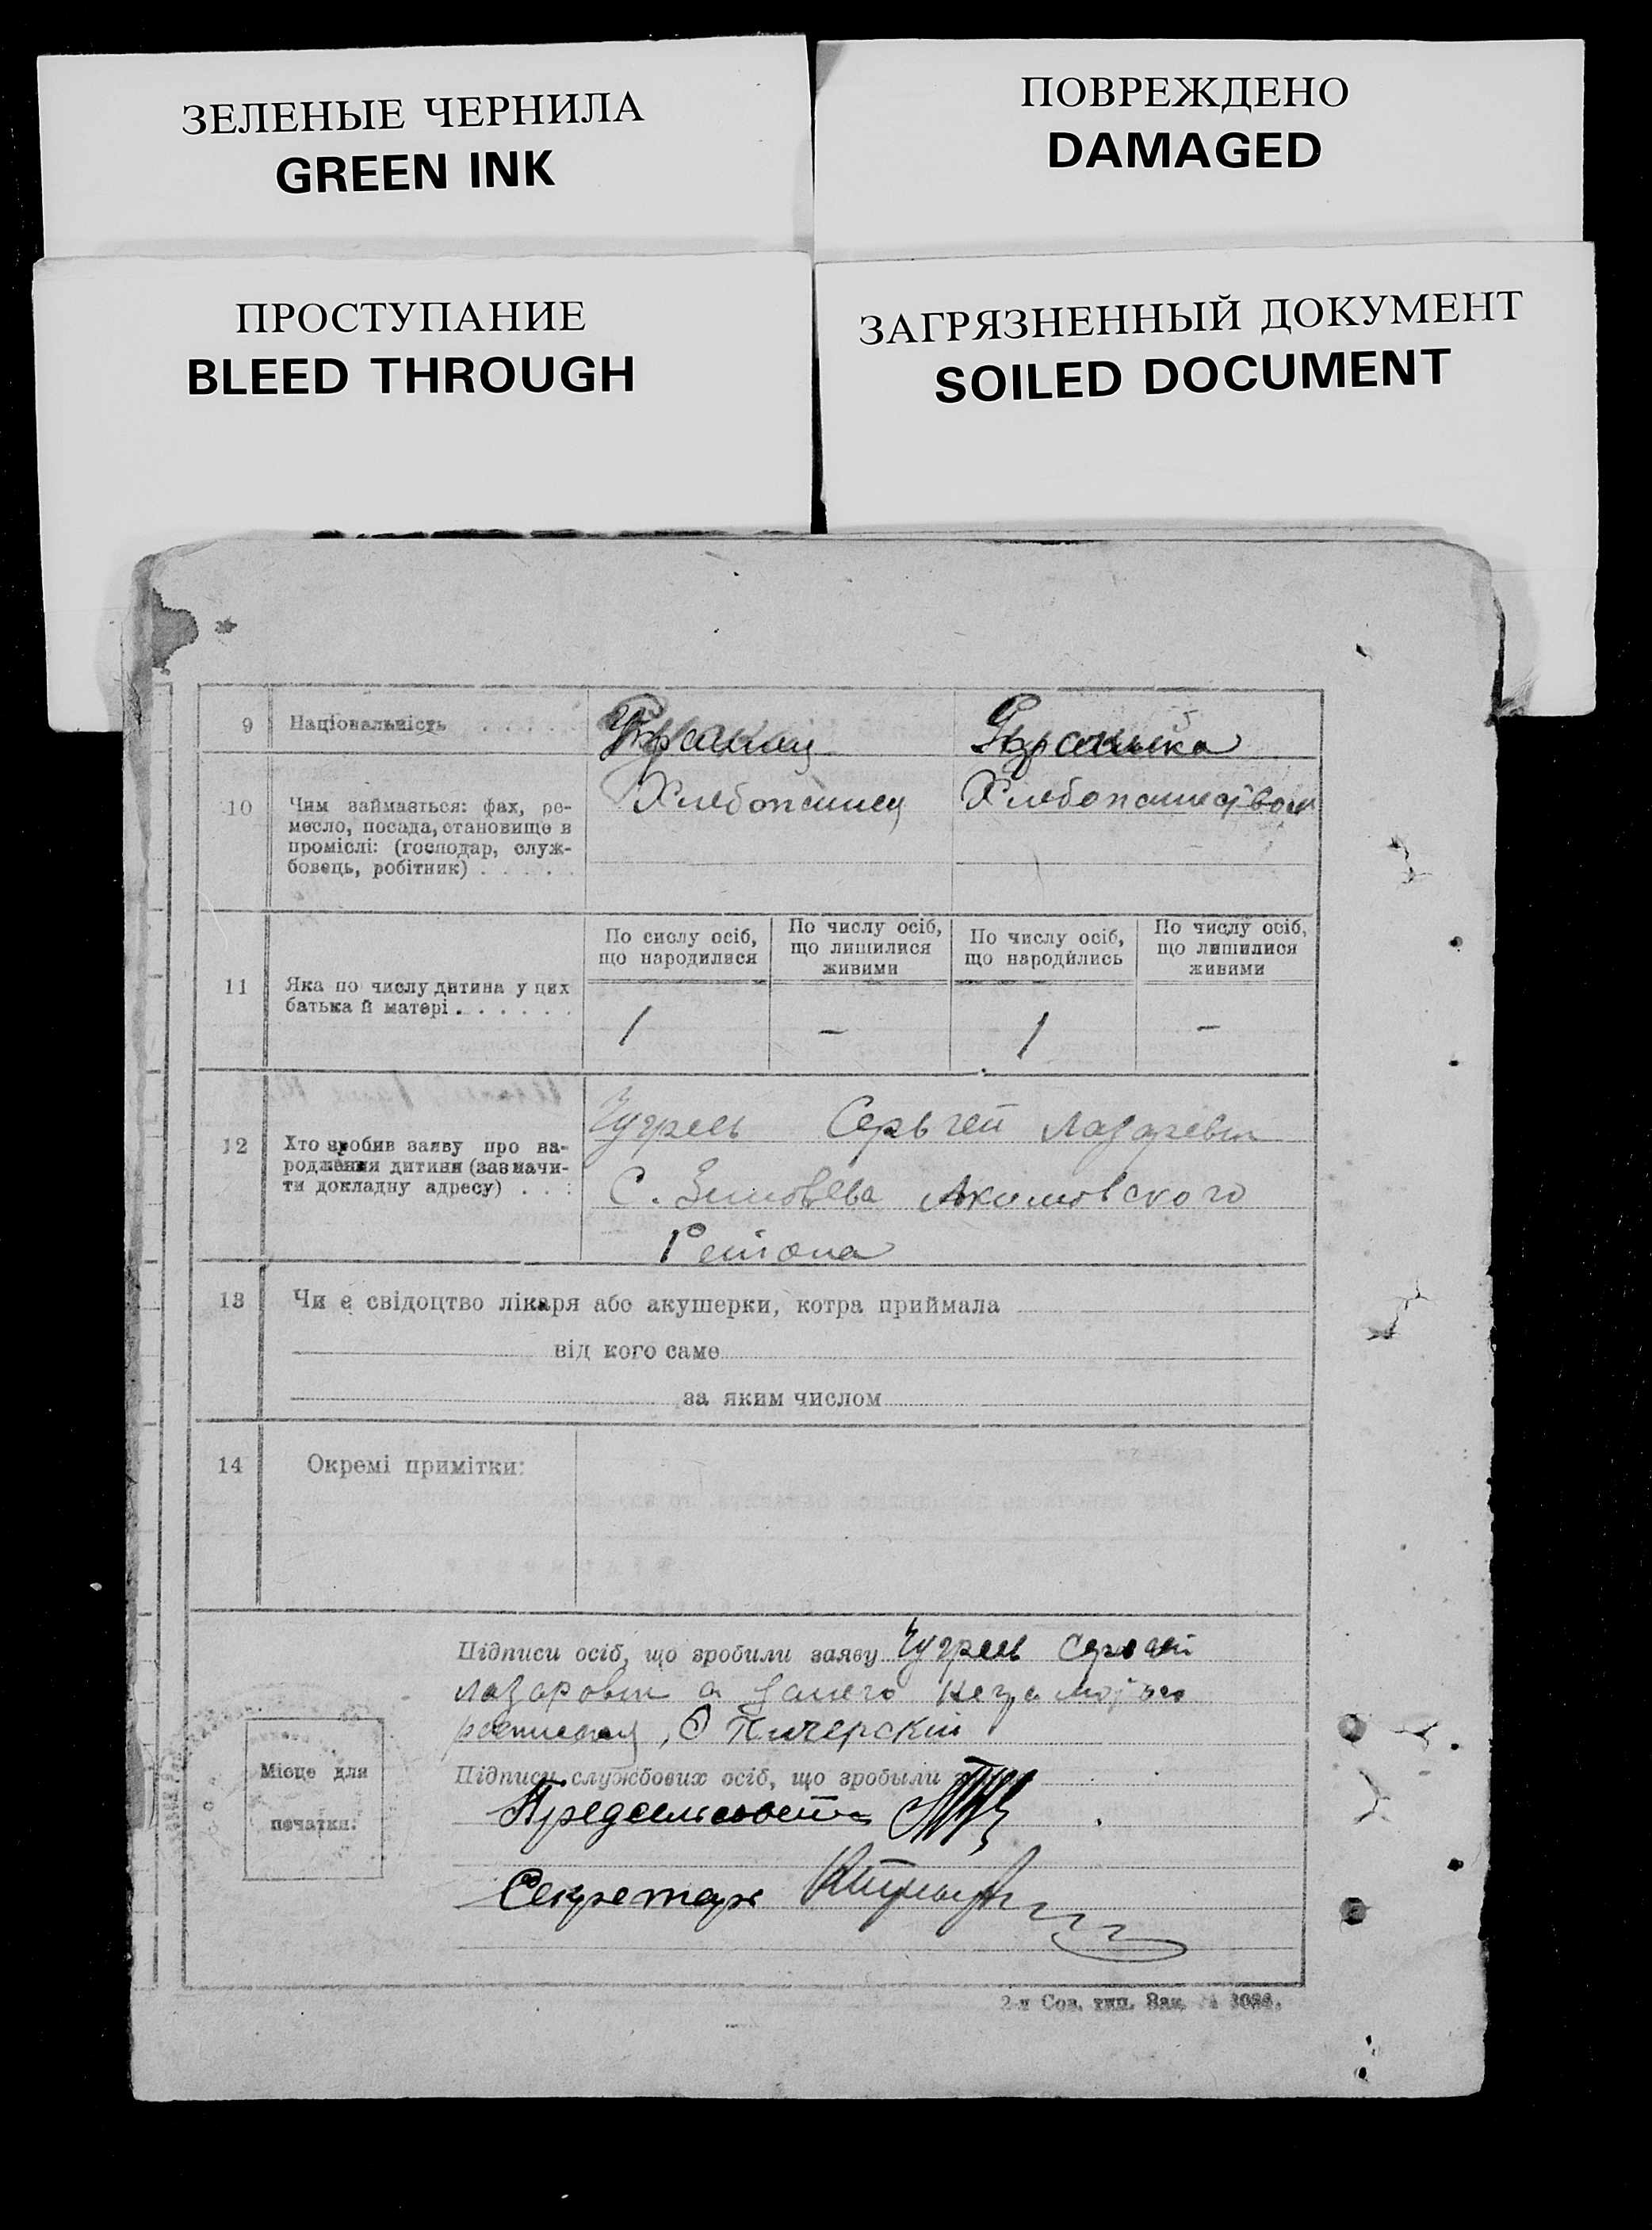 ЗЕЛЕНЫЕ ЧЕРНИЛА
GREEN INK
ПОВРЕЖДЕНО
DAMAGED
ПРОСТУПАНИЕ
BLEED THROUGH
ЗАГРЯЗНЕННЫЙ ДОКУМЕНТ
SOILED DOCUMENT
9 Національність
10 Чим займається: фах, ре-
месло, посада, становище в
проміслі: (господар, служ-
бовець, робітник)
Хлебопашец
Хлебопашеством
11 Яка по числу дитина у цих
батька й матері
По сислу осіб,
що народилися
По числу осіб,
що лишилися
живими
По числу осіб,
що народились
По числу осіб,
що лишилися
живими
1 - 1 -
12 Хто зробив заяву про на-
родження дитини (зазначи-
ти докладну адресу)
Сергей Лазаревич
С. Зиновева Акимовского
Рейона
13 Чи є свідоцтво лікаря або акушерки, котра приймала
від кого саме
за яким числом
14 Окремі примітки:
Підписи осіб, що зробили заяву
Лазаревич а занего
Підписи службових осіб, що зробыли
Місце для
печатки.
Секретарь
2-я Сов. тип. Зак. №